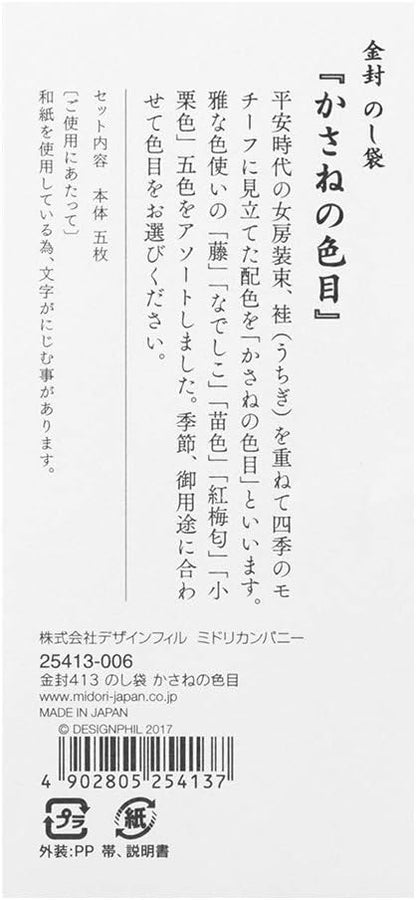 金封 のし袋
『かさねの色目』
平安時代の女房装束、袿(うちぎ)を重ねて四季のモ
チーフに見立てた配色を「かさねの色目」といいます。
雅な色使いの「藤」「なでしこ」「苗色」「紅梅匂」「小
栗色」五色をアソートしました。季節、御用途に合わ
せて色目をお選びください。
セット内容 本体 五枚
〔ご使用にあたって〕
和紙を使用している為、文字がにじむ事があります。
株式会社デザインフィル ミドリカンパニー
25413-006
金封413 のし袋 かさねの色目
www.midori-japan.co.jp
MADE IN JAPAN
© DESIGNPHIL 2017
4 902805 254137
プラ 紙
外装:PP 帯、説明書